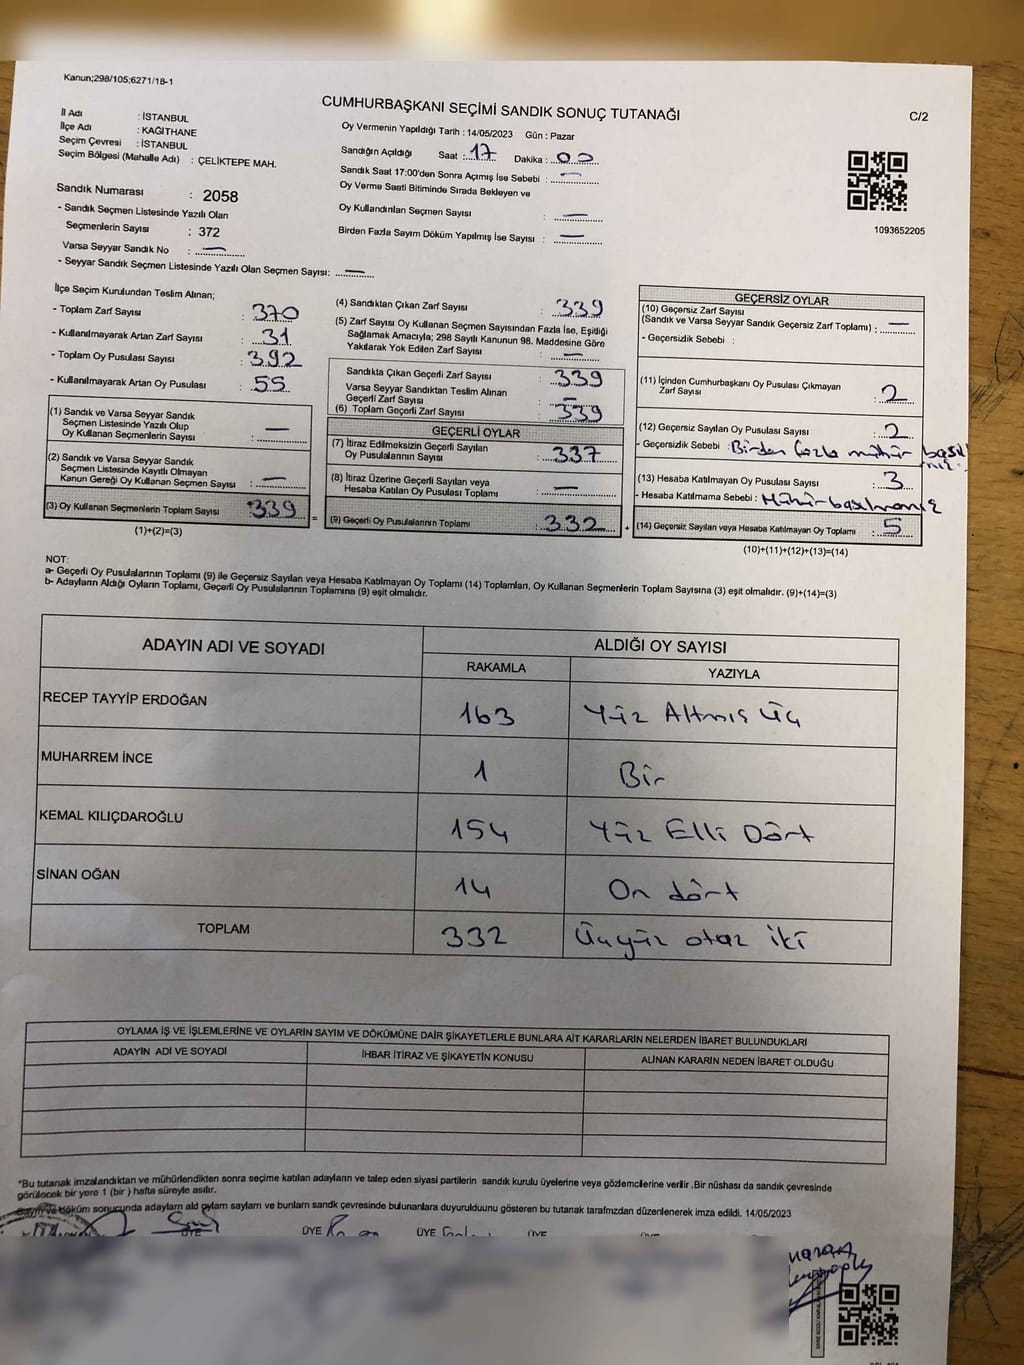 Kanun;298/105;6271/18-1
CUMHURBAŞKANI SEÇİMİ SANDIK SONUÇ TUTANAĞI
C/2
İl Adı : İSTANBUL
İlçe Adı : KAĞITHANE
Seçim Çevresi : İSTANBUL
Seçim Bölgesi (Mahalle Adı) : ÇELİKTEPE MAH.
Sandık Numarası : 2058
- Sandık Seçmen Listesinde Yazılı Olan
Seçmenlerin Sayısı : 372
Varsa Seyyar Sandık No : —
- Seyyar Sandık Seçmen Listesinde Yazılı Olan Seçmen Sayısı: —
Oy Vermenin Yapıldığı Tarih : 14/05/2023 Gün : Pazar
Sandığın Açıldığı Saat : 17 Dakika : 00
Sandık Saat 17:00'den Sonra Açımış İse Sebebi : —
Oy Verme Saati Bitiminde Sırada Bekleyen ve
Oy Kullandırılan Seçmen Sayısı : —
Birden Fazla Sayım Döküm Yapılmış İse Sayısı : —
1093652205
İlçe Seçim Kurulundan Teslim Alınan;
- Toplam Zarf Sayısı : 370
- Kullanılmayarak Artan Zarf Sayısı : 31
- Toplam Oy Pusulası Sayısı : 392
- Kullanılmayarak Artan Oy Pusulası : 55
(1) Sandık ve Varsa Seyyar Sandık
Seçmen Listesinde Yazılı Olup
Oy Kullanan Seçmenlerin Sayısı : —
(2) Sandık ve Varsa Seyyar Sandık
Seçmen Listesinde Kayıtlı Olmayan
Kanun Gereği Oy Kullanan Seçmen Sayısı : —
(3) Oy Kullanan Seçmenlerin Toplam Sayısı : 339
(1)+(2)=(3)
(4) Sandıktan Çıkan Zarf Sayısı : 339
(5) Zarf Sayısı Oy Kullanan Seçmen Sayısından Fazla İse, Eşitliği
Sağlamak Amacıyla; 298 Sayılı Kanunun 98. Maddesine Göre
Yakılarak Yok Edilen Zarf Sayısı : —
Sandıkta Çıkan Geçerli Zarf Sayısı : 339
Varsa Seyyar Sandıktan Teslim Alınan
Geçerli Zarf Sayısı : —
(6) Toplam Geçerli Zarf Sayısı : 339
GEÇERLİ OYLAR
(7) İtiraz Edilmeksizin Geçerli Sayılan
Oy Pusulalarının Sayısı : 337
(8) İtiraz Üzerine Geçerli Sayılan veya
Hesaba Katılan Oy Pusulası Toplamı : —
= (9) Geçerli Oy Pusulalarının Toplamı : 332 +
GEÇERSİZ OYLAR
(10) Geçersiz Zarf Sayısı
(Sandık ve Varsa Seyyar Sandık Geçersiz Zarf Toplamı) : —
- Geçersizlik Sebebi :
(11) İçinden Cumhurbaşkanı Oy Pusulası Çıkmayan
Zarf Sayısı : 2
(12) Geçersiz Sayılan Oy Pusulası Sayısı : 2
- Geçersizlik Sebebi : Birden fazla mühür
(13) Hesaba Katılmayan Oy Pusulası Sayısı : 3
- Hesaba Katılmama Sebebi : Mühür basılmamış
(14) Geçersiz Sayılan veya Hesaba Katılmayan Oy Toplamı : 5
(10)+(11)+(12)+(13)=(14)
NOT:
a- Geçerli Oy Pusulalarının Toplamı (9) ile Geçersiz Sayılan veya Hesaba Katılmayan Oy Toplamı (14) Toplamları, Oy Kullanan Seçmenlerin Toplam Sayısına (3) eşit olmalıdır. (9)+(14)=(3)
b- Adayların Aldığı Oyların Toplamı, Geçerli Oy Pusulalarının Toplamına (9) eşit olmalıdır.
ADAYIN ADI VE SOYADI ALDIĞI OY SAYISI
RAKAMLA YAZIYLA
RECEP TAYYİP ERDOĞAN 163 Yüz Altmış Üç
MUHARREM İNCE 1 Bir
KEMAL KILIÇDAROĞLU 154 Yüz Elli Dört
SİNAN OĞAN 14 On dört
TOPLAM 332 Üçyüz otuz iki
OYLAMA İŞ VE İŞLEMLERİNE VE OYLARIN SAYIM VE DÖKÜMÜNE DAİR ŞİKAYETLERLE BUNLARA AİT KARARLARIN NELERDEN İBARET BULUNDUKLARI
ADAYIN ADI VE SOYADI İHBAR İTİRAZ VE ŞİKAYETİN KONUSU ALINAN KARARIN NEDEN İBARET OLDUĞU
*Bu tutanak imzalandıktan ve mühürlendikten sonra seçime katılan adayların ve talep eden siyasi partilerin sandık kurulu üyelerine veya gözlemcilerine verilir .Bir nüshası da sandık çevresinde
görülecek bir yere 1 (bir ) hafta süreyle asılır.
Sayım ve döküm sonucunda adayların ald oyların sayların ve bunların sandık çevresinde bulunanlara duyurulduunu gösteren bu tutanak tarafmzdan düzenlenerek imza edildi. 14/05/2023
ÜYE ÜYE ÜYE ÜYE